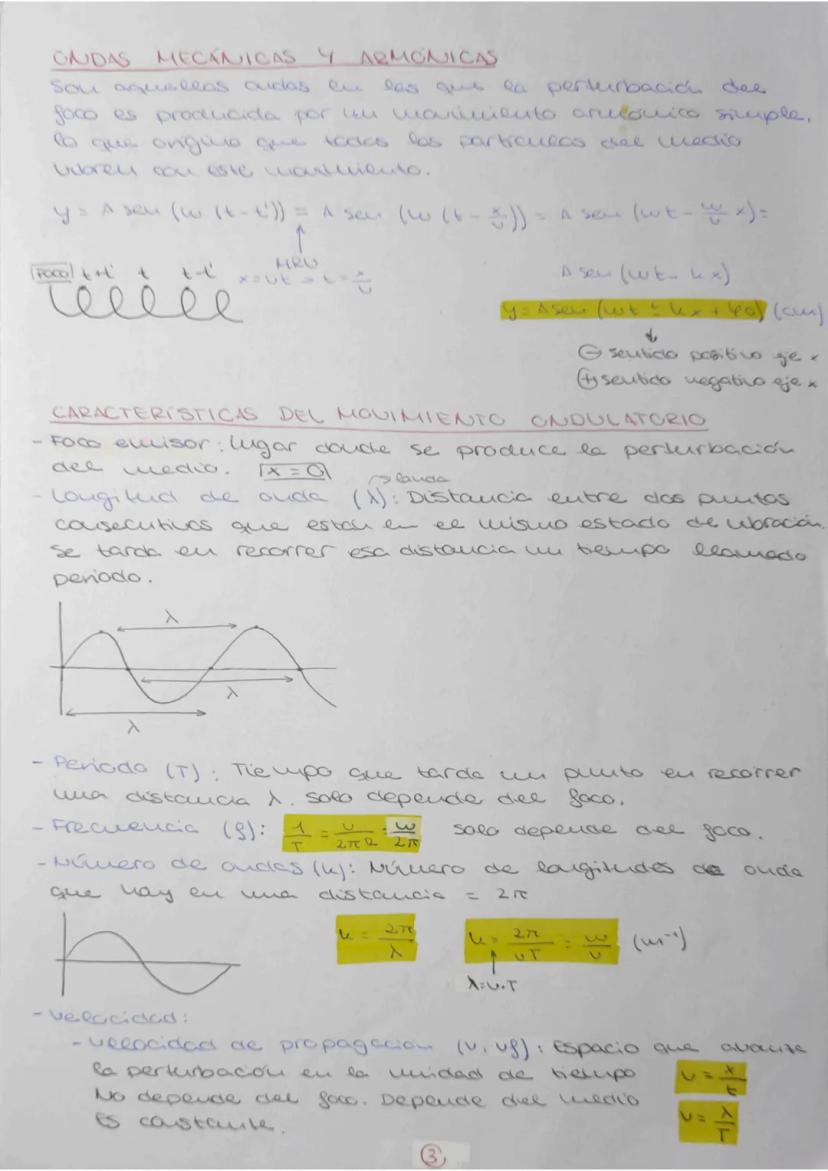 ONDAS MECÁNICAS Y ARMÓNICAS
Son aquellas ondas en las que la perturbación del
foco es producida por un movimiento armónico simple,
lo que origina que todas las partículas del medio
vibren con este movimiento.
y = A sen (w (t - t')) = A sen (w (t - x/v)) = A sen (wt - w/v x) =
MRU
FOCO t+t' t t-t' x = vt → t = x/v A sen (wt - kx)
y = A sen (wt ± kx + φ0) (cm)
⊖ sentido positivo eje x
⊕ sentido negativo eje x
CARACTERÍSTICAS DEL MOVIMIENTO ONDULATORIO
- Foco emisor: lugar donde se produce la perturbación
del medio. x = 0
→ landa
- Longitud de onda (λ): Distancia entre dos puntos
consecutivos que están en el mismo estado de vibración.
Se tarda en recorrer esa distancia un tiempo llamado
periodo.
λ
λ
λ
- Periodo (T): Tiempo que tarda un punto en recorrer
una distancia λ. Solo depende del foco.
- Frecuencia (f): 1/T = v/2πR = w/2π solo depende del foco.
- Número de ondas (k): Número de longitudes de onda
que hay en una distancia = 2π
k = 2π/λ k = 2π/vT = w/v (m⁻¹)
λ = v·T
- Velocidad:
- Velocidad de propagación (v, vf): Espacio que avanza
la perturbación en la unidad de tiempo v = x/t
No depende del foco. Depende del medio
Es constante. v = λ/T
3